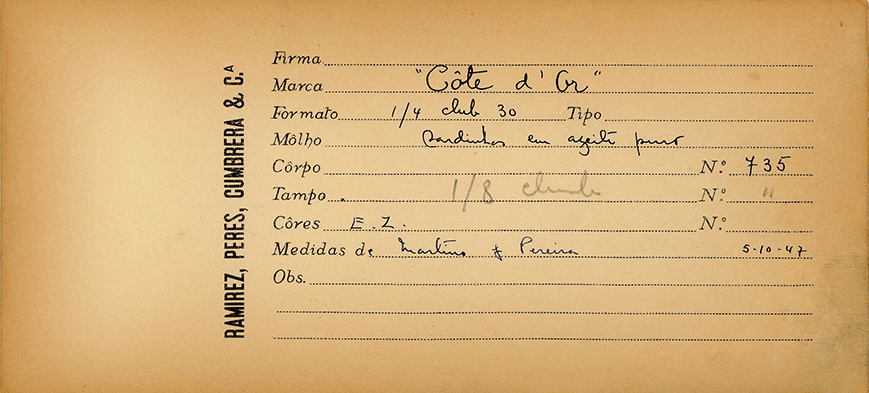 RAMIREZ, PERES, CUMBRERA & C.ª
Firma
Marca "Côte d'Or"
Formato 1/4 club 30 Tipo
Môlho sardinhas em azeite puro
Côrpo N.º 735
Tampo . 1/8 N.º "
Côres E. Z. N.º
Medidas de Martins & Pereira 5-10-47
Obs.